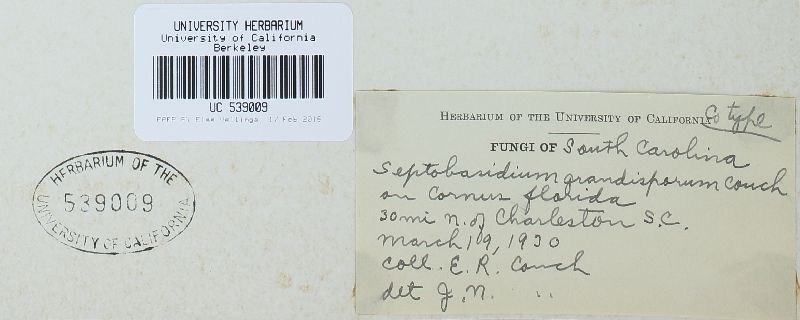 UNIVERSITY HERBARIUM
University of California
Berkeley
UC 539009
HERBARIUM OF THE
539009
UNIVERSITY OF CALIFORNIA
HERBARIUM OF THE UNIVERSITY OF CALIFORNIA Co type
FUNGI OF South Carolina
Septobasidium grandisporum Couch
on Cornus florida
30mi n. of Charleston S.C.
March 19, 1930
Coll. E. R. Couch
det J. N. " "